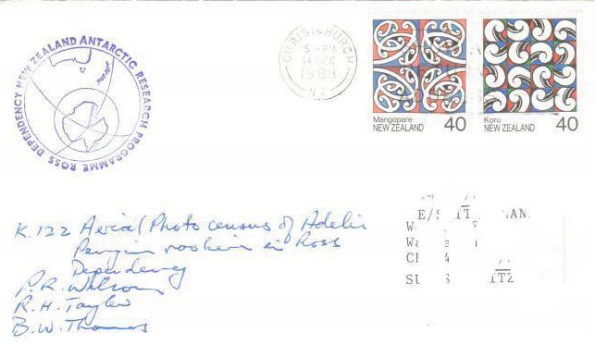 NEW ZEALAND ANTARCTIC RESEARCH PROGRAMME ROSS DEPENDENCY
CHRISTCHURCH
5 - PM
14 DEC
1988
N.Z.
Mangopare
NEW ZEALAND 40
Koru
NEW ZEALAND 40
K.122 Aerial Photo census of Adelie
Penguin rookeries in Ross
Dependency
P.R. Wilson
R.H. Taylor
B.W. Thomas